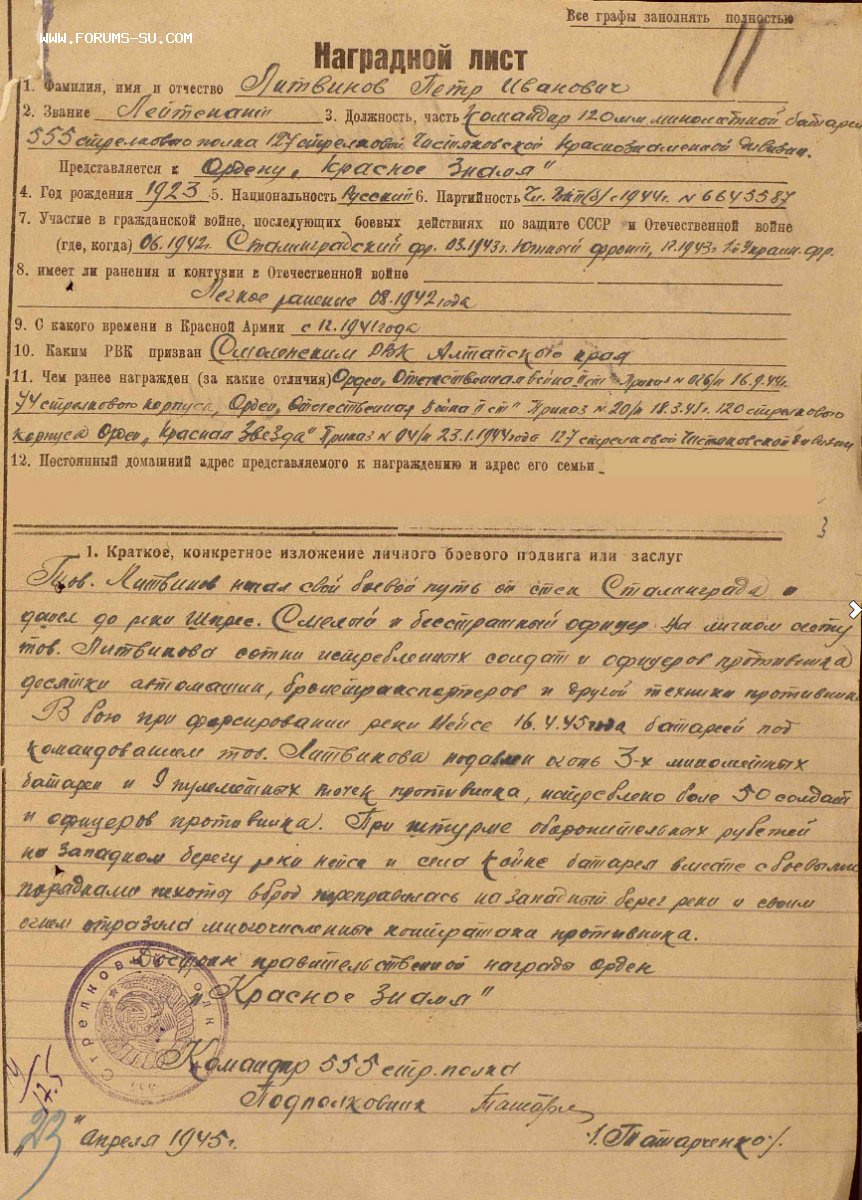 Все графы заполнять полностью
WWW.FORUMS-SU.COM
11
Наградной лист
1. Фамилия, имя и отчество Литвинов Петр Иванович
2. Звание Лейтенант 3. Должность, часть Командир 120 мм минометной батареи
555 стрелкового полка 127 стрелковой Чистяковской Краснознаменной дивизии.
Представляется к Ордену „Красное Знамя"
4. Год рождения 1923 5. Национальность Русский 6. Партийность Чл. ВКП(б) с 1944г. № 6645587
7. Участие в гражданской войне, последующих боевых действиях по защите СССР и Отечественной войне
(где, когда) 06.1942г. Сталинградский фр. 03.1943г. Южный фронт, 12.1943г. 1й Украин. фр.
8. имеет ли ранения и контузии в Отечественной войне
Легкое ранение 08.1942 года
9. С какого времени в Красной Армии с 12.1941 года
10. Каким РВК призван Смоленским РВК Алтайского края
11. Чем ранее награжден (за какие отличия) Орден „Отечественная война II ст" Приказ № 026/н 16.9.44г.
74 стрелкового корпуса, Орден „Отечественная война II ст" Приказ № 20/н 18.3.45г. 120 стрелкового
корпуса Орден „Красная Звезда" Приказ № 04/н 23.1.1944 года 127 стрелковой Чистяковской дивизии
12. Постоянный домашний адрес представляемого к награждению и адрес его семьи
3
1. Краткое, конкретное изложение личного боевого подвига или заслуг
Тов. Литвинов начал свой боевой путь от стен Сталинграда и
дошел до реки Шпрее. Смелый и бесстрашный офицер. На личном счету
тов. Литвинова сотни истребленных солдат и офицеров противника
десятки автомашин, бронетранспортеров и другой техники противника.
В бою при форсировании реки Нейсе 16.4.45 года батареей под
командованием тов. Литвинова подавлен огонь 3-х минометных
батарей и 9 пулеметных точек противника, истреблено боле 50 солдат
и офицеров противника. При штурме оборонительных рубежей
на западном берегу реки Нейсе и села Койне батарея вместе с боевыми
порядками пехоты вброд переправилась на западный берег реки и своим
огнем отразила многочисленные контратаки противника.
Достоин правительственной награды Орден
„Красное Знамя"
Командир 555 стр. полка
Подполковник
/Татарченко/.
„23" апреля 1945г.